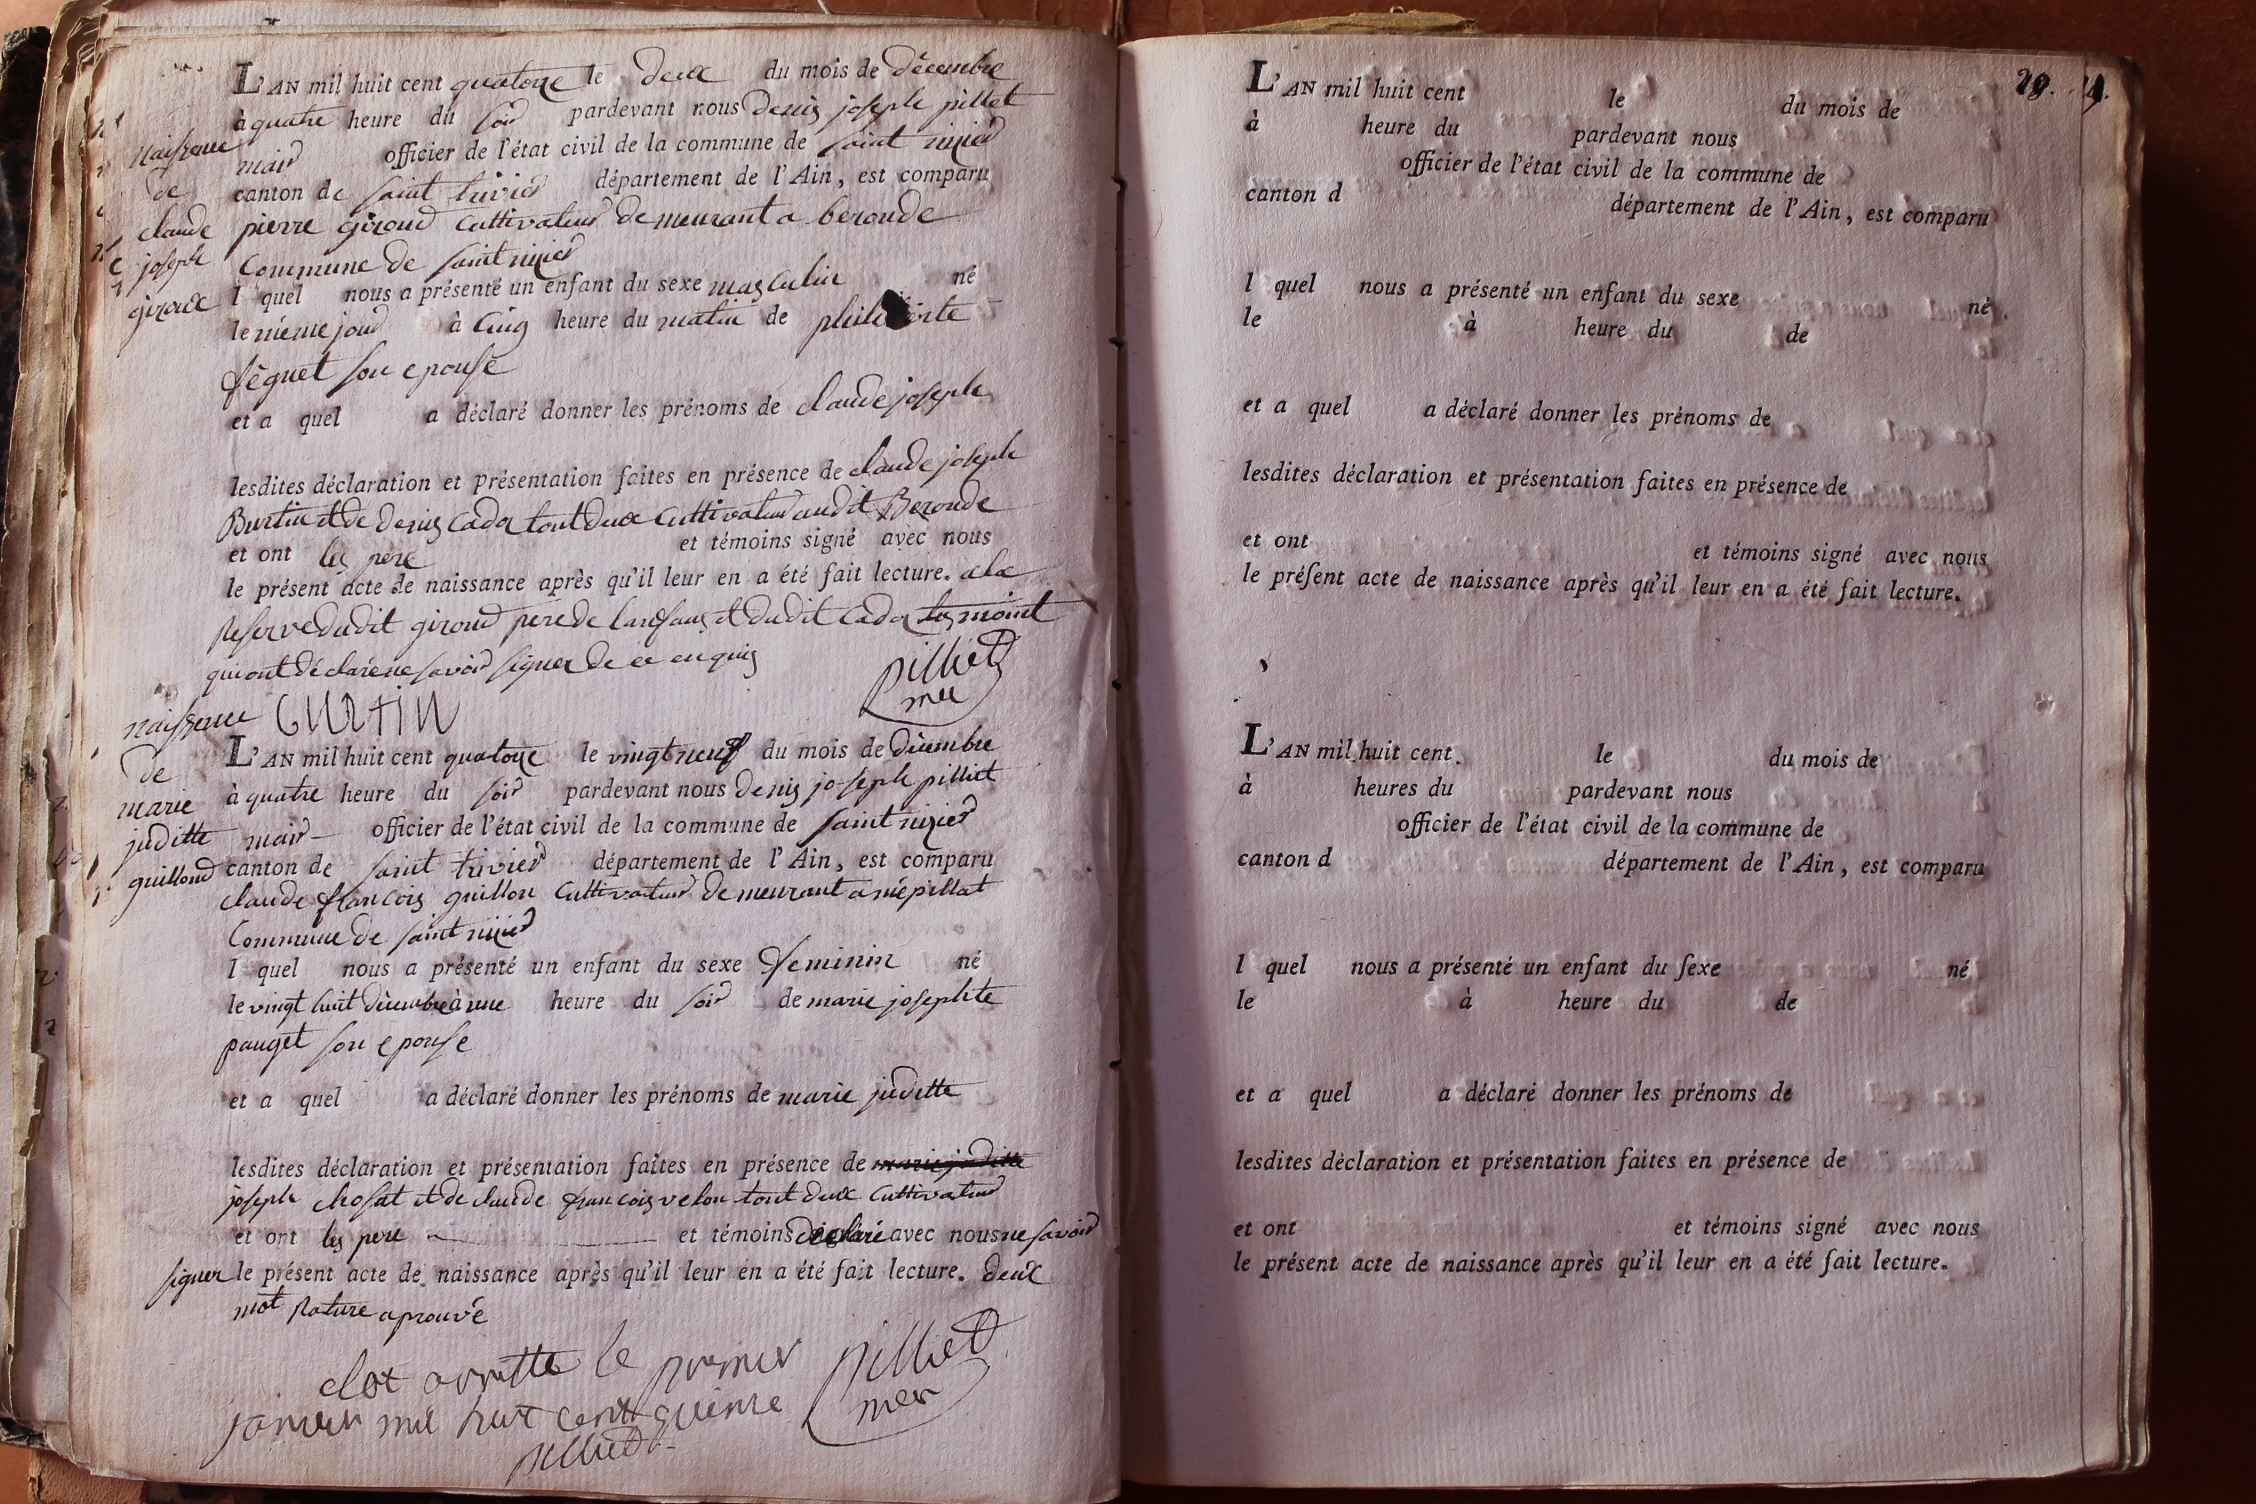 L'AN mil huit cent quatorze le deux du mois de décembre
à quatre heure du soir pardevant nous denis joseph pilliet
mair officier de l'état civil de la commune de saint nizier
canton de saint trivier département de l'Ain, est comparu
pierre giroud cultivateur demeurant a beronde
commune de saint nizier
l quel nous a présenté un enfant du sexe masculin né
le même jour à cinq heure du matin de
féguet son epouse
et a quel a déclaré donner les prénoms de claude joseph
lesdites déclaration et présentation faites en présence de claude joseph
Burtin et de denis Cada tout deux cultivateur audit Beronde
et ont les pere et témoins signé avec nous
le présent acte de naissance après qu'il leur en a été fait lecture. a la
reserve dudit giroud pere de lanfant et dudit Cada tesmoint
qui ont déclaré ne savoir signer de ce enquis
pilliet
mer
naissance
de
claude
joseph
giroux
L'AN mil huit cent quatorze le vingt neuf du mois de décembre
à quatre heure du soir pardevant nous denis joseph pilliet
mair officier de l'état civil de la commune de saint nizier
canton de saint trivier département de l'Ain, est comparu
claude françois guillon cultivateur demeurant a mépillat
commune de saint nizier
l quel nous a présenté un enfant du sexe feminin né
le vingt huit décembre à une heure du soir de marie josephte
pauget son epouse
et a quel a déclaré donner les prénoms de marie juditte
lesdites déclaration et présentation faites en présence de marie juditte
joseph chosat et de claude françois velon tout deux cultivateur
et ont les pere et témoins déclaré avec nous ne savoir
signer le présent acte de naissance après qu'il leur en a été fait lecture. deux
mot rature aprouvé
naissance
de
marie
juditte
guilloud
clot arrette le premier
janvier mil huit cent quinze
pilliet
mer
pilliet
29.
L'AN mil huit cent le du mois de
à heure du pardevant nous
officier de l'état civil de la commune de
canton d département de l'Ain, est comparu
l quel nous a présenté un enfant du sexe né
le à heure du de
et a quel a déclaré donner les prénoms de
lesdites déclaration et présentation faites en présence de
et ont et témoins signé avec nous
le préſent acte de naissance après qu'il leur en a été fait lecture.
L'AN mil huit cent le du mois de
à heures du pardevant nous
officier de l'état civil de la commune de
canton d département de l'Ain, est comparu
l quel nous a présenté un enfant du ſexe né
le à heure du de
et a quel a déclaré donner les prénoms de
lesdites déclaration et présentation faites en présence de
et ont et témoins signé avec nous
le présent acte de naissance après qu'il leur en a été fait lecture.